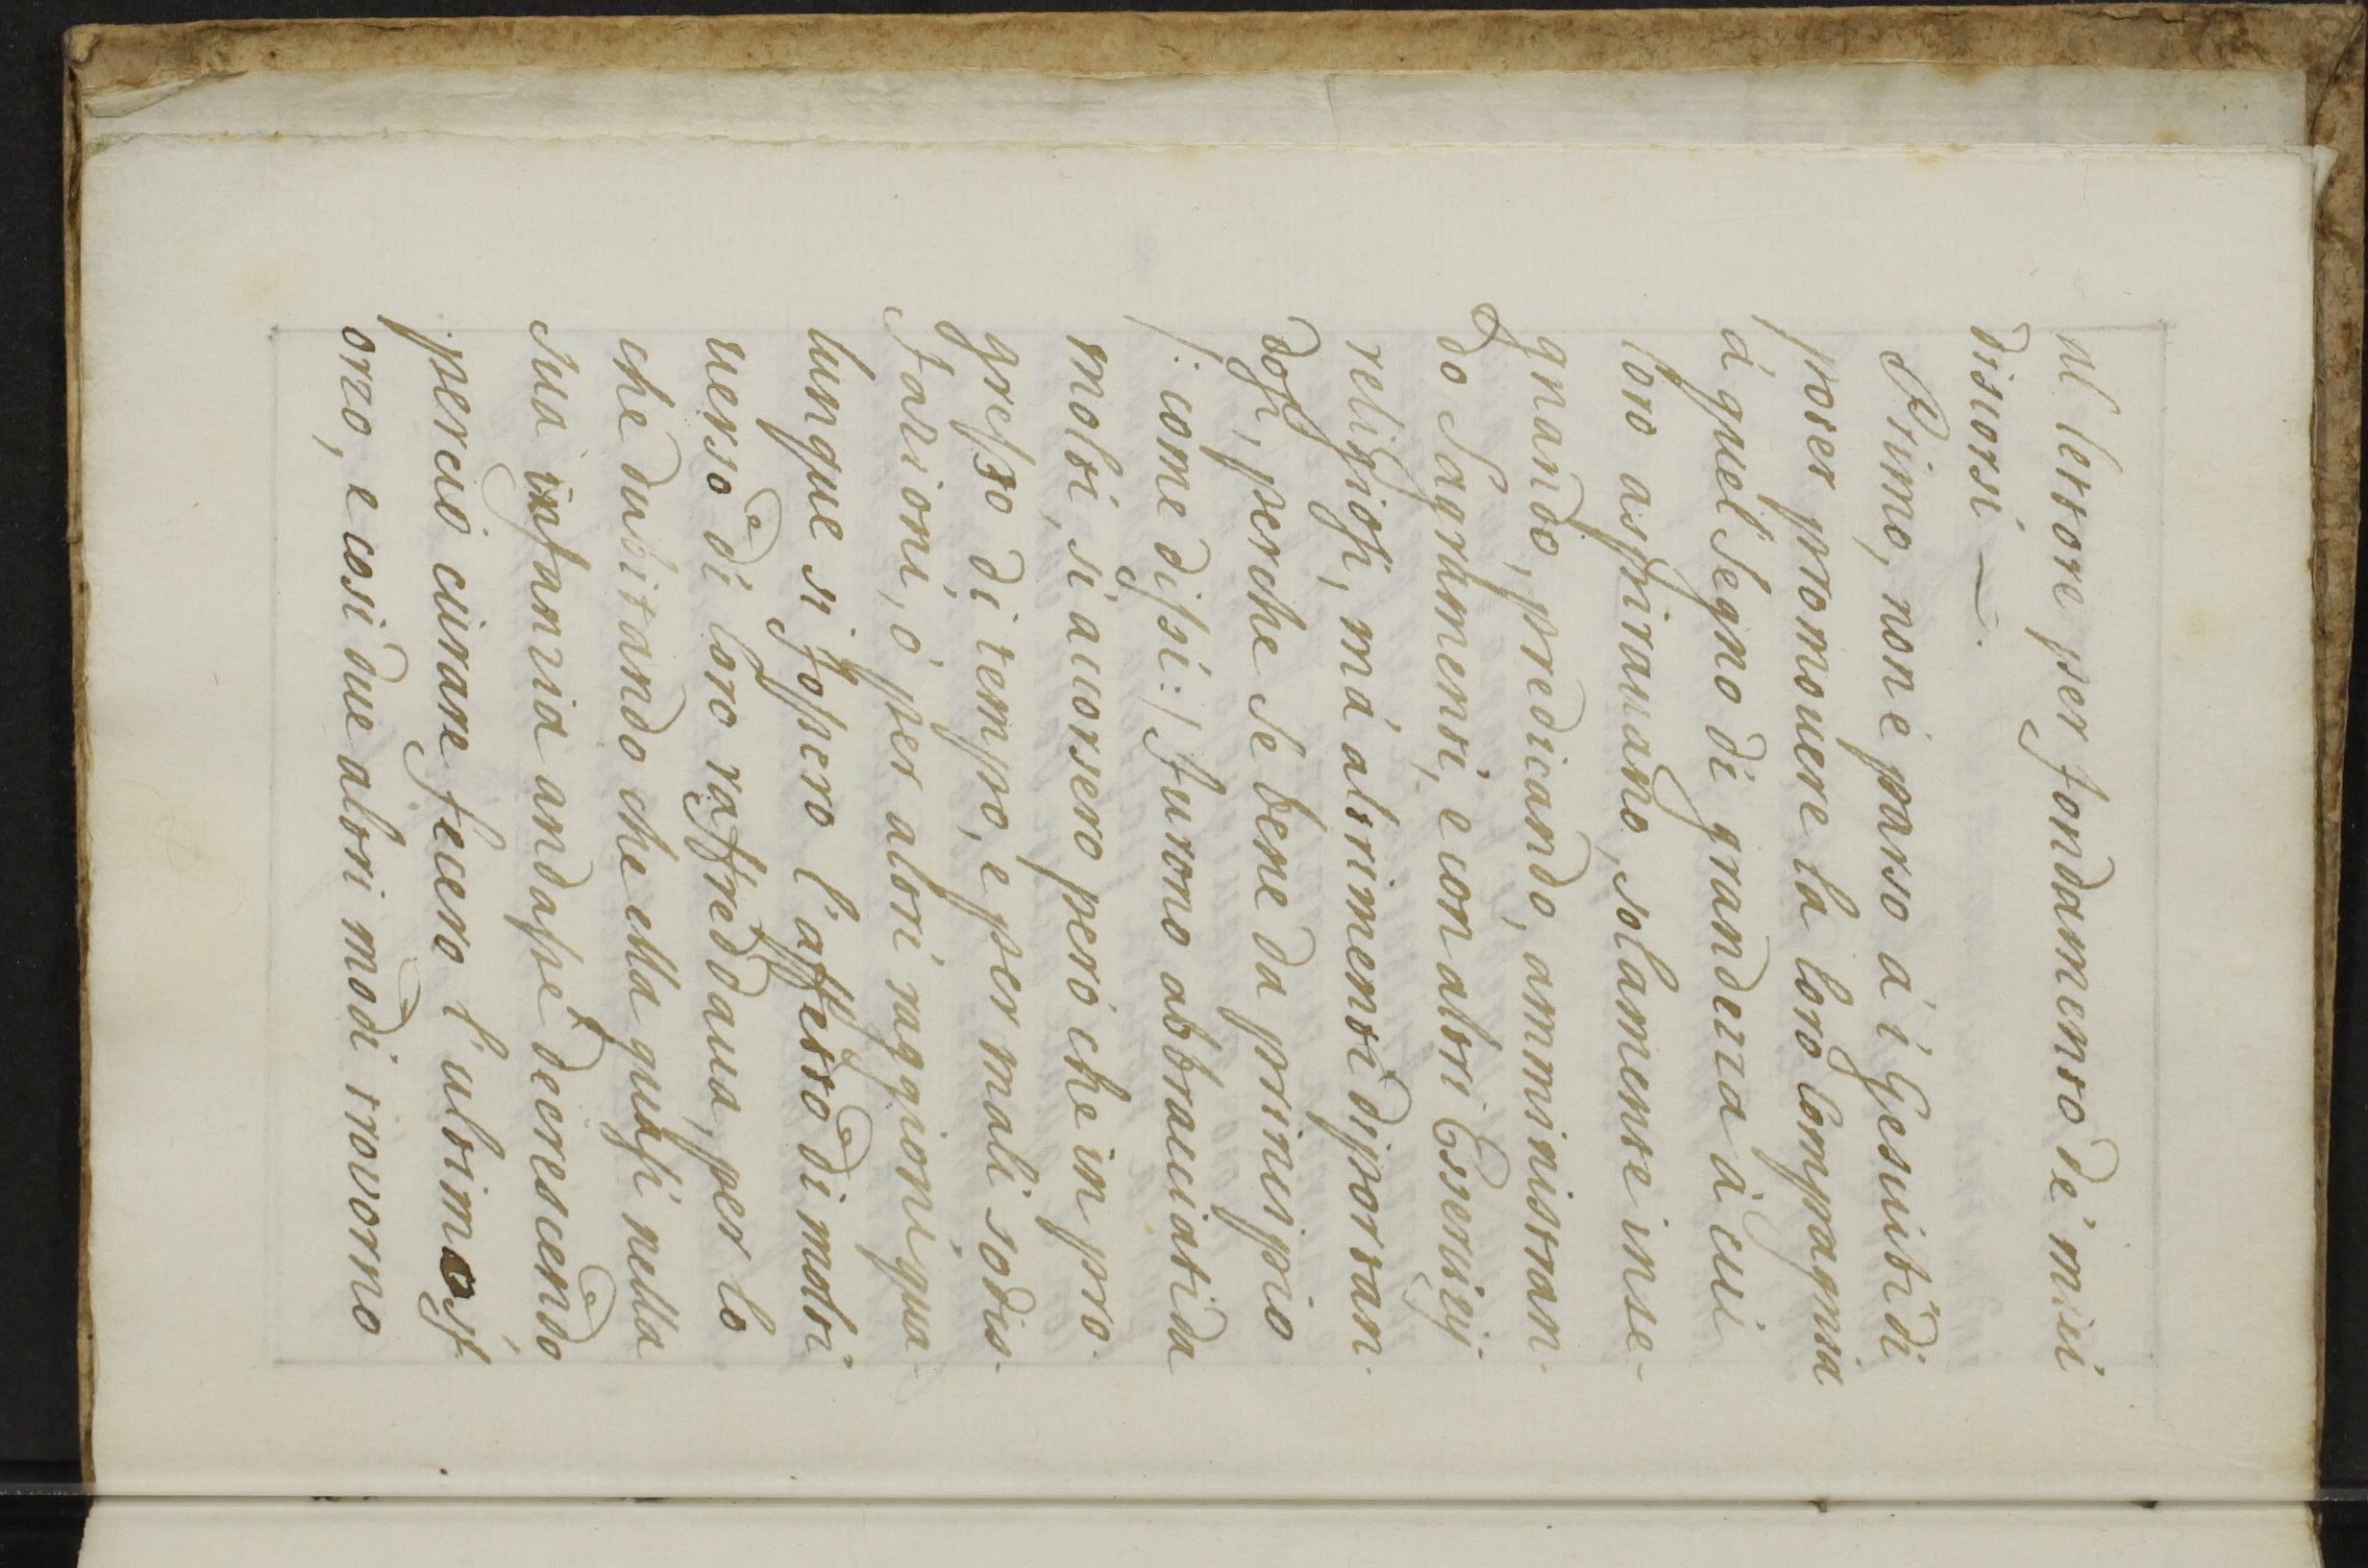 al lettore per fondamento de' miei
discorsi —.
Primo, non è parso à i Gesuiti di
poter promouere la loro Compagnia
à quel segno di grandezza à cui
loro aspirauano, solamente inse-
gnando, predicando, amministran-
do Sagramenti, e con altri Essercizij
religiosi, mà altrimenti diportan-
dosi, perche se bene da principio
/: come dissi :/ furono abbracciati da
molti, si accorsero però che in pro-
gresso di tempo, e per mali sodis-
fazioni, ò per altri raggioni, qua-
lunque si fossero l'affetto di molti
uerso di loro raffreddaua, per lo
che dubitando che ella quasi nella
sua infanzia andasse decrescendo
perciò curare fecero l'ultimo sf-
orzo, e così due altri modi trovorno